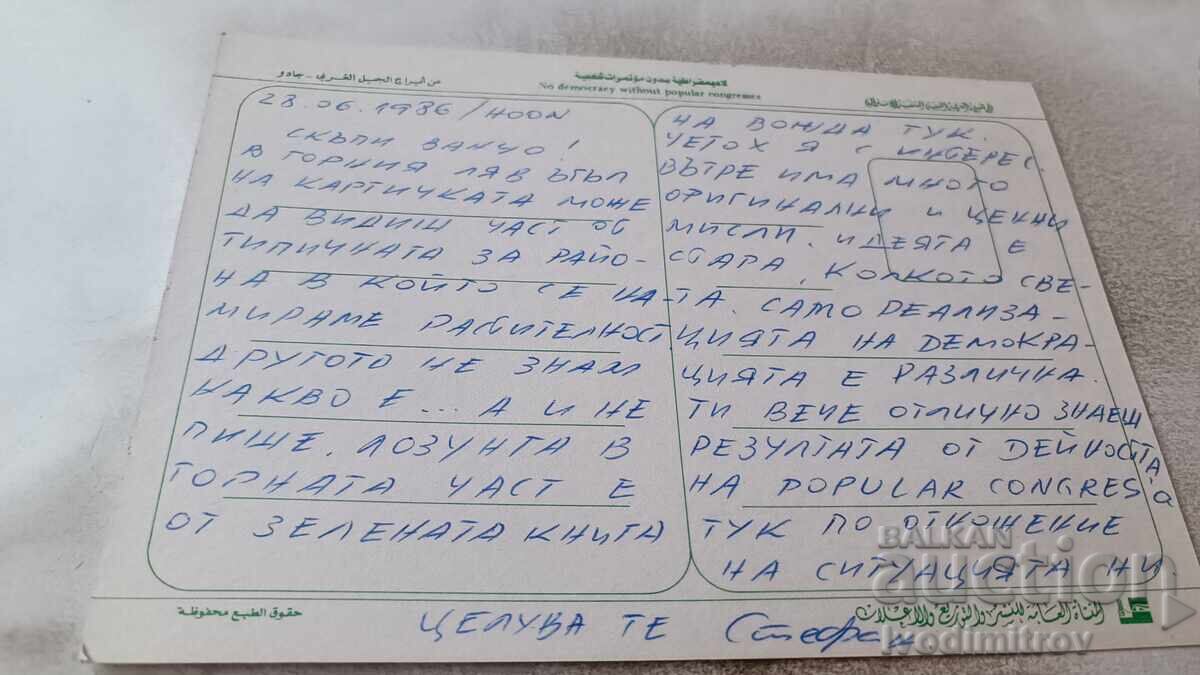 من أبراج الجبل الغربي - جادو
لا ديمقراطية بدون مؤتمرات شعبية
No democracy without popular congresses
28.06.1986 /HOON
СКЪПИ ВАНЧО!
В ГОРНИЯ ЛЯВ ЪГЪЛ
НА КАРТИЧКАТА МОЖЕ
ДА ВИДИШ ЧАСТ ОТ
ТИПИЧНАТА ЗА РАЙО-
НА В КОЙТО СЕ НА-
МИРАМЕ РАСТИТЕЛНОСТ.
ДРУГОТО НЕ ЗНАМ
КАКВО Е... А И НЕ
ПИШЕ. ЛОЗУНГА В
ГОРНАТА ЧАСТ Е
ОТ ЗЕЛЕНАТА КНИГА
НА ВОЖДА ТУК.
ЧЕТОХ Я С ИНТЕРЕС.
ВЪТРЕ ИМА МНОГО
ОРИГИНАЛНИ И ЦЕННИ
МИСЛИ. ИДЕЯТА Е
СТАРА, КОЛКОТО СВЕ-
ТА. САМО РЕАЛИЗА-
ЦИЯТА НА ДЕМОКРА-
ЦИЯТА Е РАЗЛИЧНА.
ТИ ВЕЧЕ ОТЛИЧНО ЗНАЕШ
РЕЗУЛТАТА ОТ ДЕЙНОСТТА
НА POPULAR CONGRES А
ТУК ПО ОТНОШЕНИЕ
НА СИТУАЦИЯТА НИ
حقوق الطبع محفوظة
المنشأة العامة للنشر والتوزيع والإعلان
ЦЕЛУВА ТЕ Стефан
BALKAN
auction
ivodimitrov